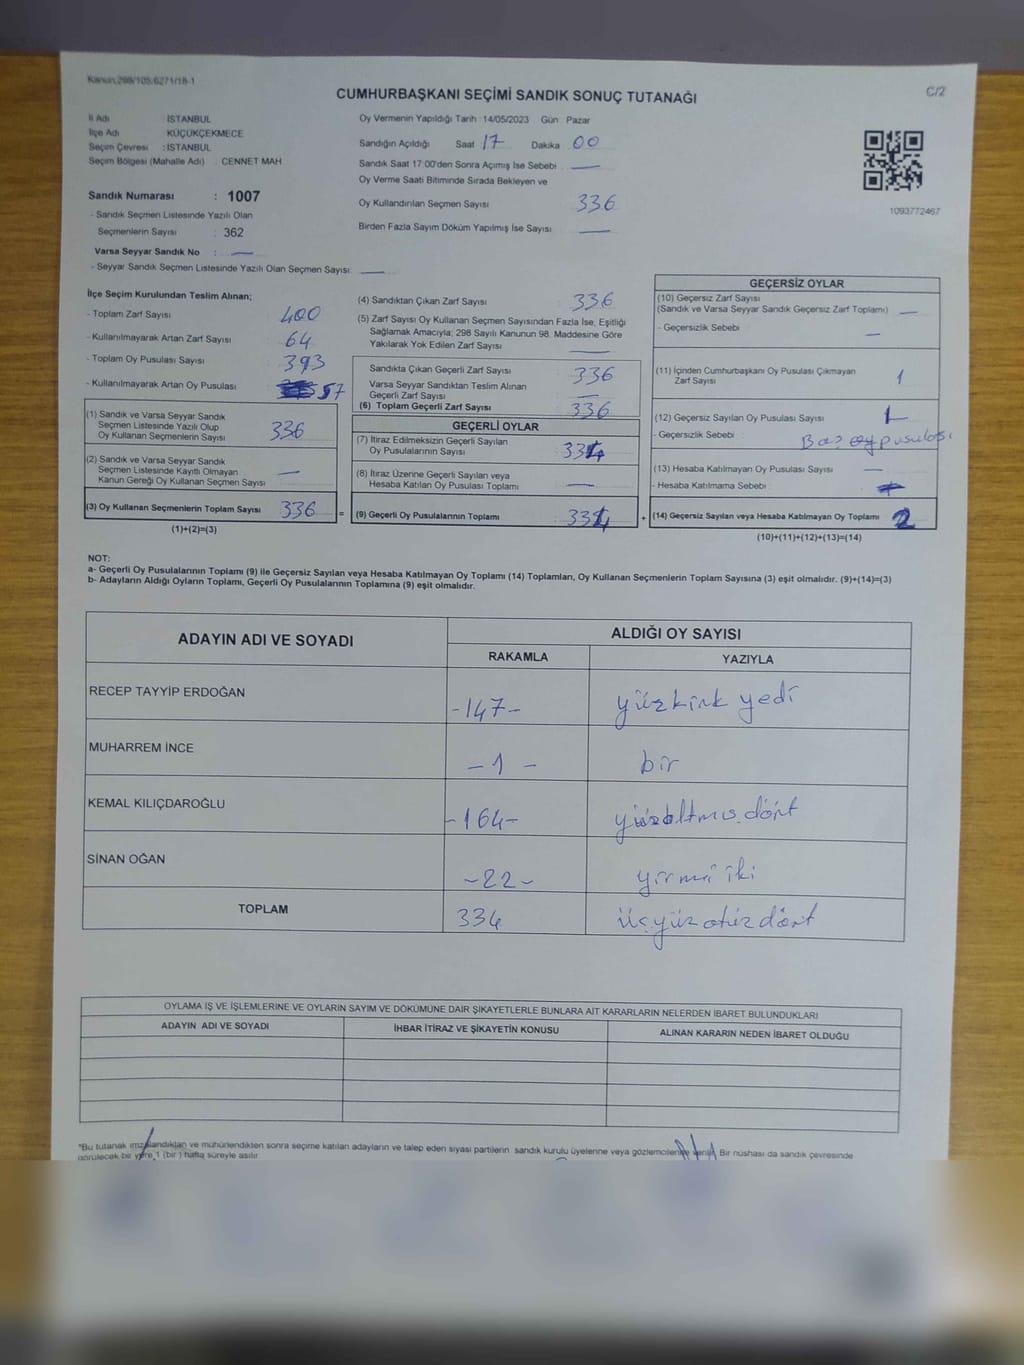 Kanun.298/105,6271/18-1
C/2
CUMHURBAŞKANI SEÇİMİ SANDIK SONUÇ TUTANAĞI
İl Adı İSTANBUL
İlçe Adı KÜÇÜKÇEKMECE
Seçim Çevresi : İSTANBUL
Seçim Bölgesi (Mahalle Adı) : CENNET MAH
Sandık Numarası : 1007
- Sandık Seçmen Listesinde Yazılı Olan
Seçmenlerin Sayısı : 362
Varsa Seyyar Sandık No : —
- Seyyar Sandık Seçmen Listesinde Yazılı Olan Seçmen Sayısı: —
Oy Vermenin Yapıldığı Tarih : 14/05/2023 Gün Pazar
Sandığın Açıldığı Saat 17 Dakika 00
Sandık Saat 17:00'den Sonra Açımış İse Sebebi —
Oy Verme Saati Bitiminde Sırada Bekleyen ve
Oy Kullandırılan Seçmen Sayısı 336
Birden Fazla Sayım Döküm Yapılmış İse Sayısı —
1093772467
İlçe Seçim Kurulundan Teslim Alınan;
- Toplam Zarf Sayısı 400
- Kullanılmayarak Artan Zarf Sayısı 64
- Toplam Oy Pusulası Sayısı 393
- Kullanılmayarak Artan Oy Pusulası 57
(1) Sandık ve Varsa Seyyar Sandık
Seçmen Listesinde Yazılı Olup
Oy Kullanan Seçmenlerin Sayısı 336
(2) Sandık ve Varsa Seyyar Sandık
Seçmen Listesinde Kayıtlı Olmayan
Kanun Gereği Oy Kullanan Seçmen Sayısı —
(3) Oy Kullanan Seçmenlerin Toplam Sayısı 336 =
(1)+(2)=(3)
(4) Sandıktan Çıkan Zarf Sayısı 336
(5) Zarf Sayısı Oy Kullanan Seçmen Sayısından Fazla İse, Eşitliği
Sağlamak Amacıyla; 298 Sayılı Kanunun 98. Maddesine Göre
Yakılarak Yok Edilen Zarf Sayısı —
Sandıkta Çıkan Geçerli Zarf Sayısı 336
Varsa Seyyar Sandıktan Teslim Alınan
Geçerli Zarf Sayısı —
(6) Toplam Geçerli Zarf Sayısı 336
GEÇERLİ OYLAR
(7) İtiraz Edilmeksizin Geçerli Sayılan
Oy Pusulalarının Sayısı 334
(8) İtiraz Üzerine Geçerli Sayılan veya
Hesaba Katılan Oy Pusulası Toplamı —
(9) Geçerli Oy Pusulalarının Toplamı 334 +
GEÇERSİZ OYLAR
(10) Geçersiz Zarf Sayısı
(Sandık ve Varsa Seyyar Sandık Geçersiz Zarf Toplamı) —
- Geçersizlik Sebebi —
(11) İçinden Cumhurbaşkanı Oy Pusulası Çıkmayan
Zarf Sayısı 1
(12) Geçersiz Sayılan Oy Pusulası Sayısı 1
- Geçersizlik Sebebi : Boş oy pusulası
(13) Hesaba Katılmayan Oy Pusulası Sayısı —
- Hesaba Katılmama Sebebi
(14) Geçersiz Sayılan veya Hesaba Katılmayan Oy Toplamı 2
(10)+(11)+(12)+(13)=(14)
NOT:
a- Geçerli Oy Pusulalarının Toplamı (9) ile Geçersiz Sayılan veya Hesaba Katılmayan Oy Toplamı (14) Toplamları, Oy Kullanan Seçmenlerin Toplam Sayısına (3) eşit olmalıdır. (9)+(14)=(3)
b- Adayların Aldığı Oyların Toplamı, Geçerli Oy Pusulalarının Toplamına (9) eşit olmalıdır.
ADAYIN ADI VE SOYADI
ALDIĞI OY SAYISI
RAKAMLA YAZIYLA
RECEP TAYYİP ERDOĞAN -147- yüzkırk yedi
MUHARREM İNCE -1- bir
KEMAL KILIÇDAROĞLU -164- yüzaltmış dört
SİNAN OĞAN -22- yirmi iki
TOPLAM 334 üçyüz otuz dört
OYLAMA İŞ VE İŞLEMLERİNE VE OYLARIN SAYIM VE DÖKÜMÜNE DAİR ŞİKAYETLERLE BUNLARA AİT KARARLARIN NELERDEN İBARET BULUNDUKLARI
ADAYIN ADI VE SOYADI İHBAR İTİRAZ VE ŞİKAYETİN KONUSU ALINAN KARARIN NEDEN İBARET OLDUĞU
*Bu tutanak imzalandıktan ve mühürlendikten sonra seçime katılan adayların ve talep eden siyasi partilerin sandık kurulu üyelerine veya gözlemcilerine verilir. Bir nüshası da sandık çevresinde
görülecek bir yere 1 (bir) hafta süreyle asılır.